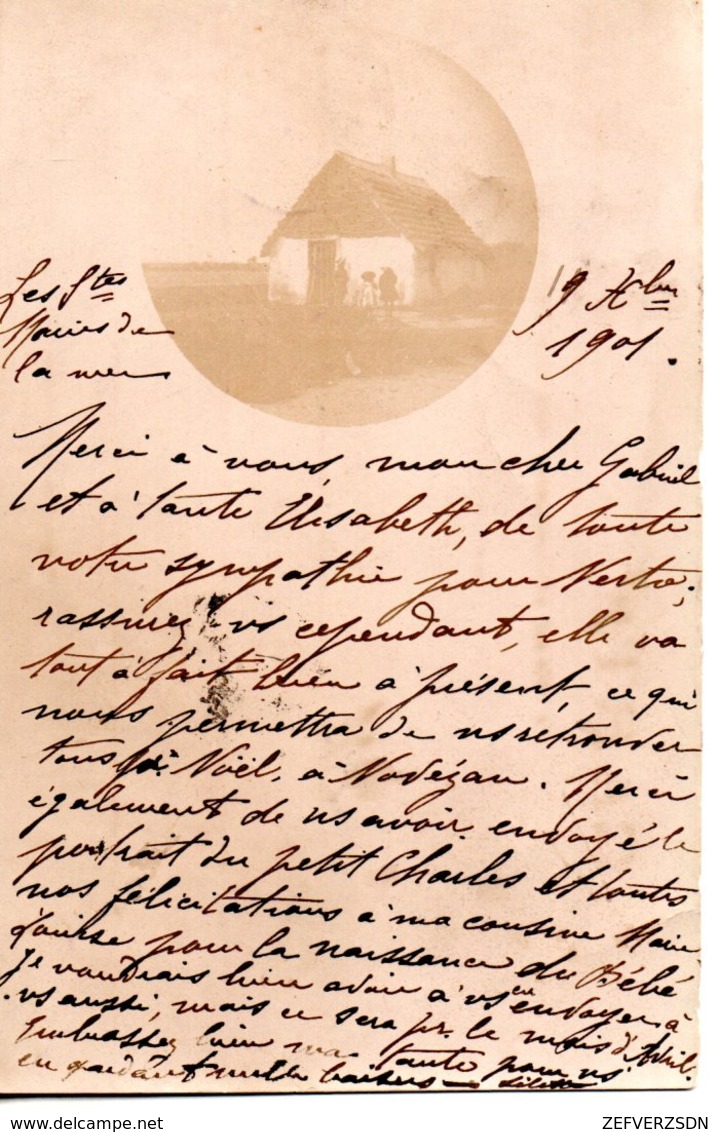 Les Stes
Maries de
la mer
19 Xbre
1901.
Merci à vous, mon cher Gabriel
et à tante Elisabeth, de toute
votre sympathie pour
rassurez-vs cependant, elle va
tout à fait bien à présent, ce qui
nous permettra de ns retrouver
tous à Noël, à Merci
également de ns avoir envoyé le
portrait du petit Charles et toutes
nos félicitations à ma cousine Marie
Louise pour la naissance du Bébé
je voudrais bien avoir à vs en envoyer à
vs aussi, mais ce sera pr. le mois d'Avril.
Embrassez bien ma tante pour ns
en gardant mille baisers
ZEFVERZSDN